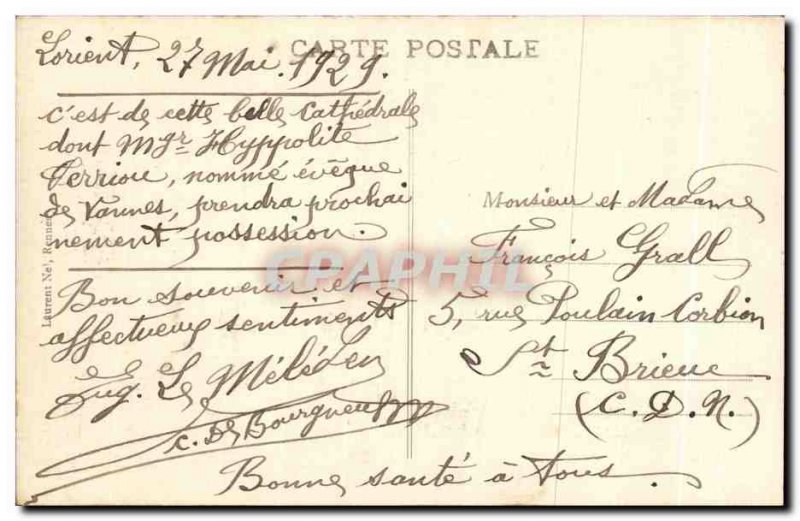 Lorient, 27 Mai 1929.
CARTE POSTALE
c'est de cette belle Cathédrale
dont Mgr Hyppolite
Terriou, nommé évêque
de Vannes, prendra prochai
nement possession.
Bon souvenir et
affectueux sentiments
Eug. Le Méléder
C. De Bourgneuf
Bonne santé à tous.
Monsieur et Madame
François Grall
5, rue Poulain Corbion
St Brieuc
(C.D.N.)
Laurent Nel, Rennes
CPAPHIL